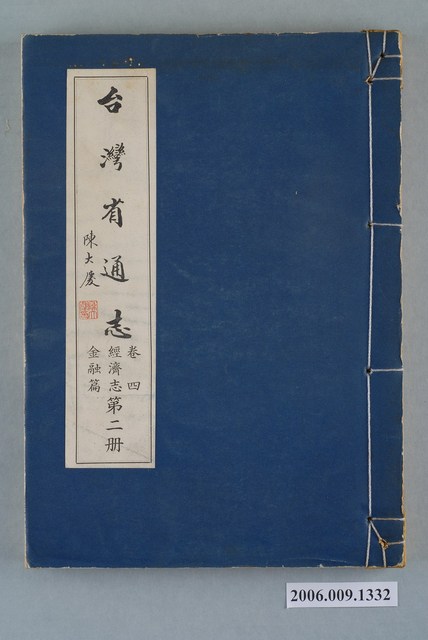 台灣省通志
陳大慶
卷四
經濟志第二册
金融篇
2006.009.1332